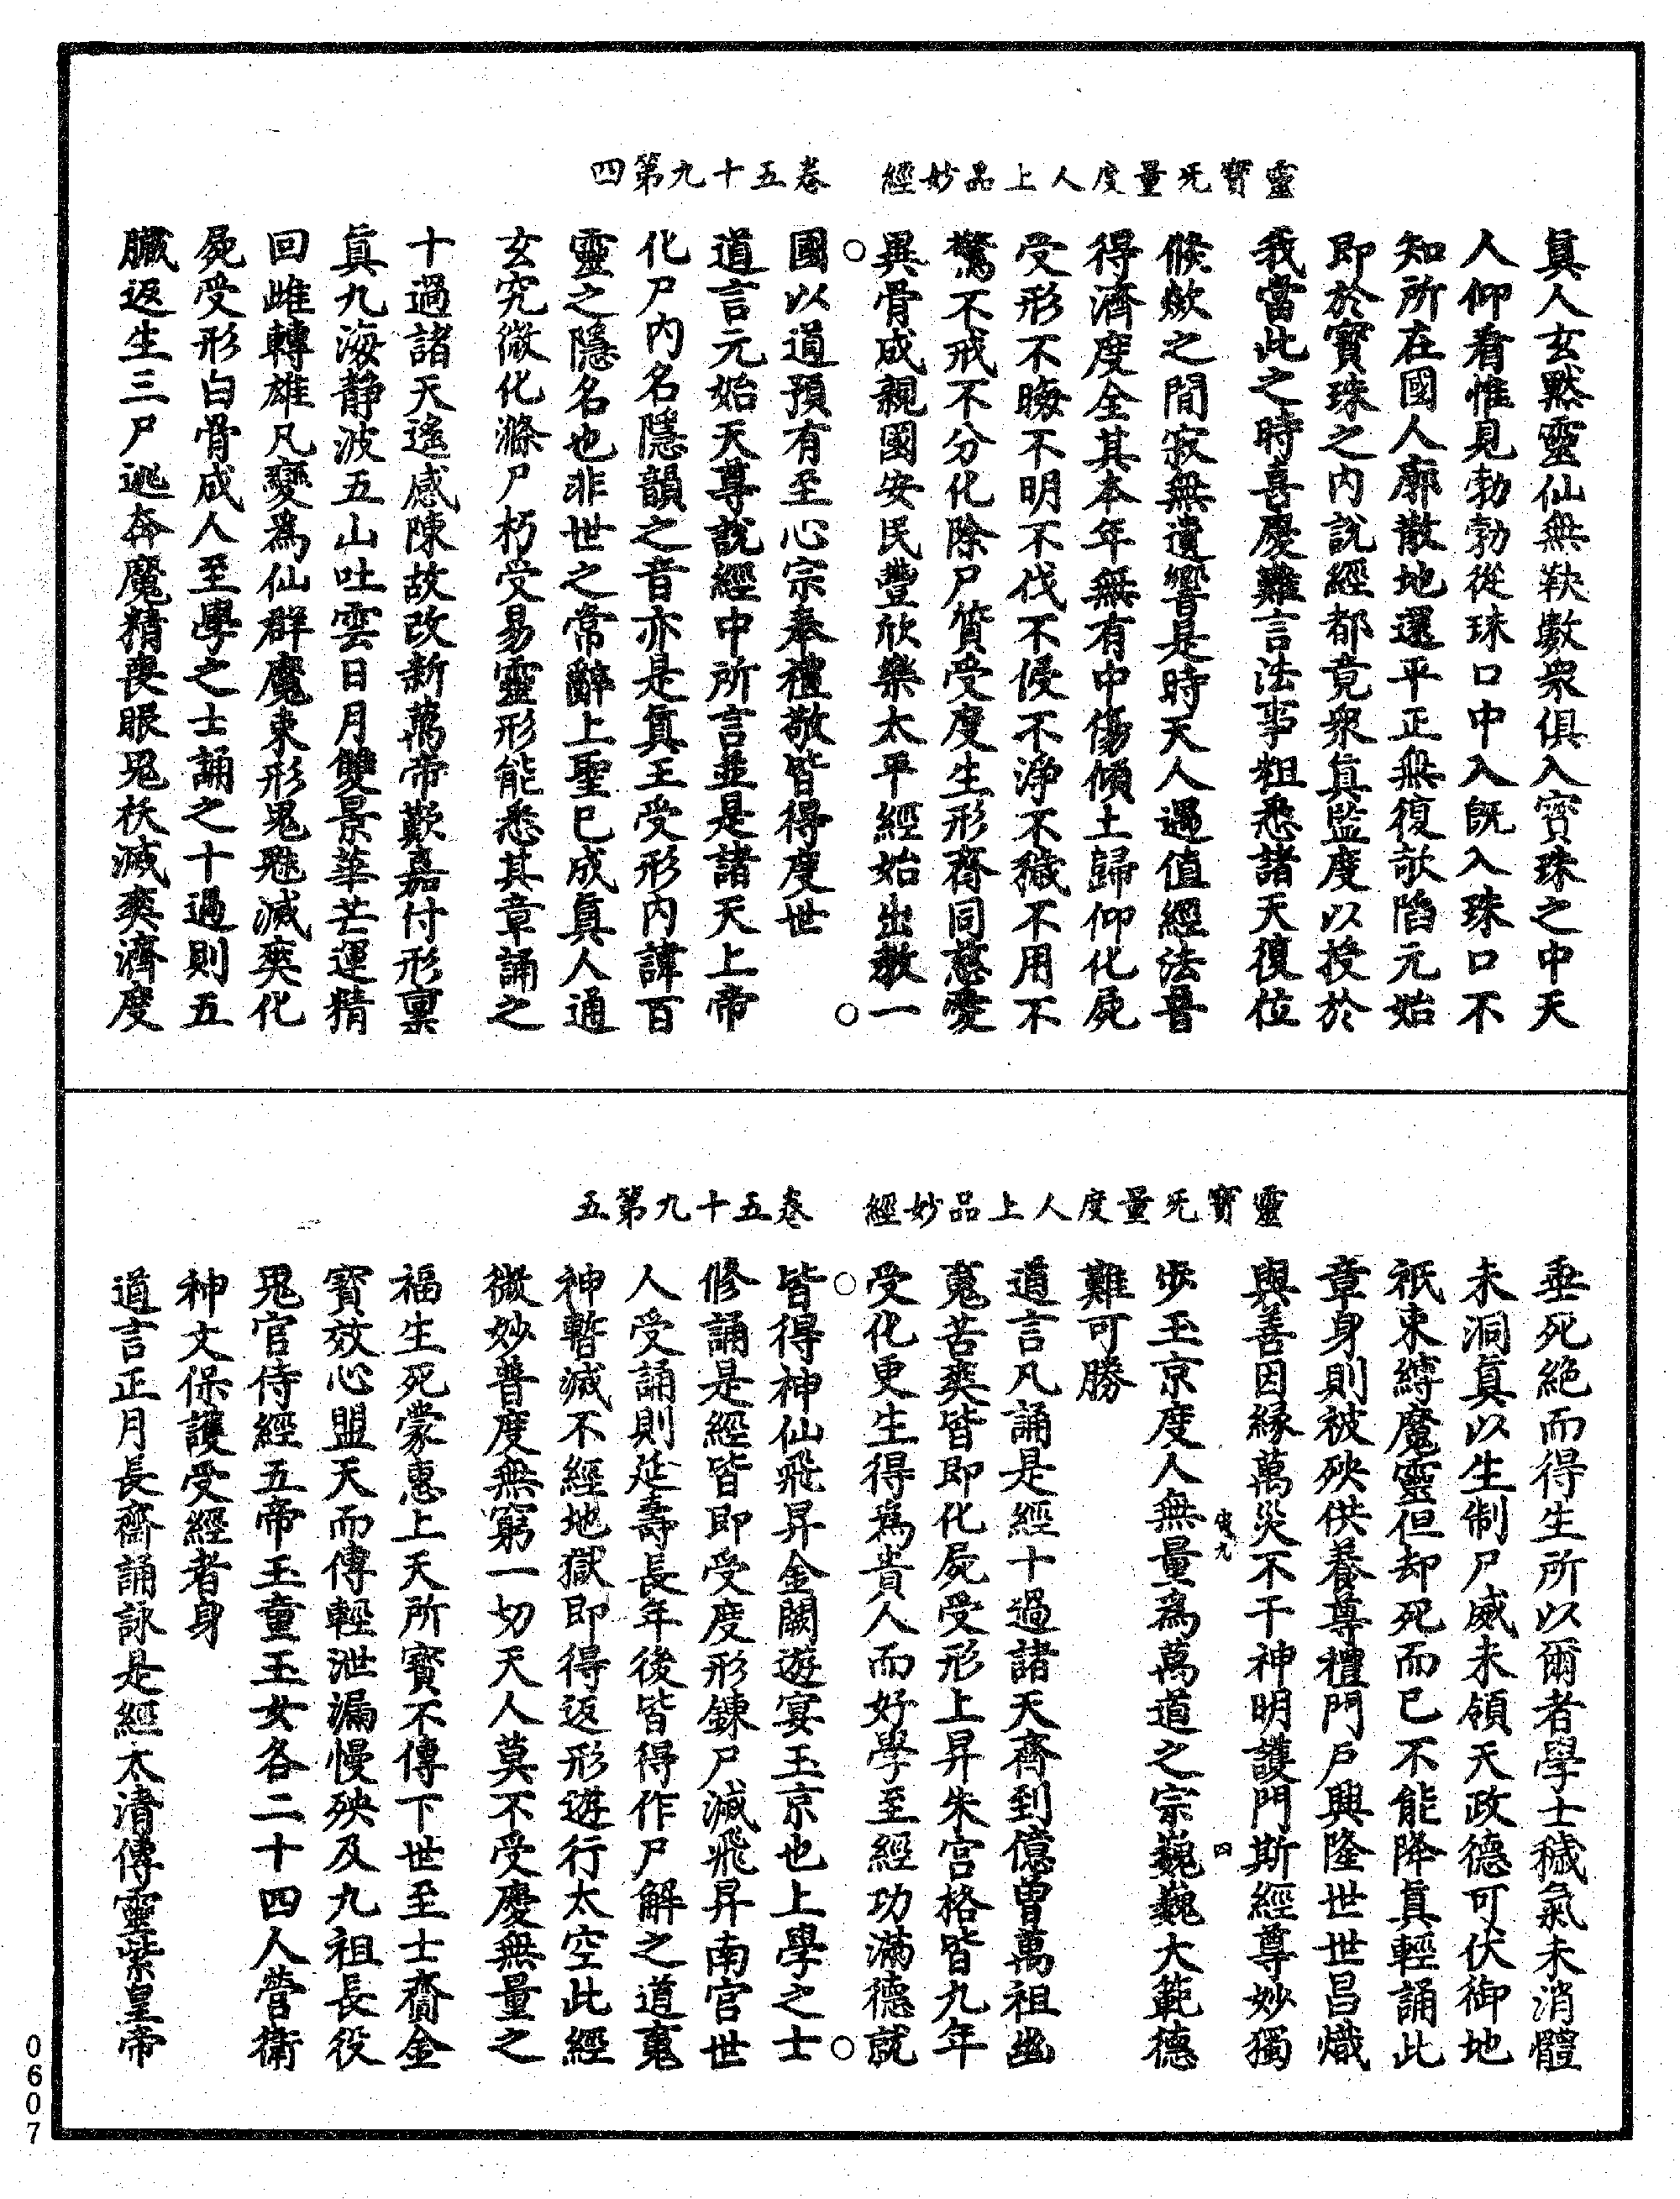 靈寶旡量度人上品妙經　卷五十九第四
眞人玄默靈仙無鞅數衆俱入寶珠之中天
人仰看惟見勃勃從珠口中入旣入珠口不
知所在國人廓散地還平正無復欹陷元始
即於寶珠之內說經都竟衆眞監度以授於
我當此之時喜慶難言法事粗悉諸天復位
倏歘之間寂無遺響是時天人遇值經法普
得濟度全其本年無有中傷傾土歸仰化屍
受形不晦不明不伐不侵不淨不穢不用不
驚不戒不分化除尸質受度生形齊同慈愛
異骨成親國安民豐欣樂太平經始出敎一
國以道預有至心宗奉禮敬皆得度世
道言元始天尊說經中所言並是諸天上帝
化尸內名隱韻之音亦是眞王受形內諱百
靈之隱名也非世之常辭上聖已成眞人通
玄究微化滌尸朽受易靈形能悉其章誦之
十過諸天遙感陳故改新萬帝歎嘉付形稟
眞九海靜波五山吐雲日月雙景華芒運精
回雌轉雄凡變爲仙群魔束形鬼魁滅爽化
屍受形白骨成人至學之士誦之十過則五
臟返生三尸逃奔魔精喪眼鬼祅滅爽濟度
靈寶旡量度人上品妙經　卷五十九第五
垂死絕而得生所以爾者學士穢氣未消體
未洞眞以生制尸威未領天政德可伏御地
祇束縛魔靈但却死而已不能降眞輕誦此
章身則被殃供養尊禮門戶興隆世世昌熾
與善因緣萬災不干神明護門斯經尊妙獨
步玉京度人無量爲萬道之宗巍巍大範德
難可勝
道言凡誦是經十過諸天齊到億曾萬祖幽
䰟苦爽皆即化屍受形上昇朱宮格皆九年
受化更生得爲貴人而好學至經功滿德就
皆得神仙飛昇金闕遊宴玉京也上學之士
修誦是經皆即受度形鍊尸滅飛昇南宮世
人受誦則延壽長年後皆得作尸解之道䰟
神暫滅不經地獄即得返形遊行太空此經
微妙普度無窮一切天人莫不受慶無量之
福生死蒙惠上天所寶不傳下世至士齎金
寶效心盟天而傳輕泄漏慢殃及九祖長役
鬼官侍經五帝玉童玉女各二十四人營衛
神文保護受經者身
道言正月長齋誦詠是經太清傳靈紫皇帝
0607